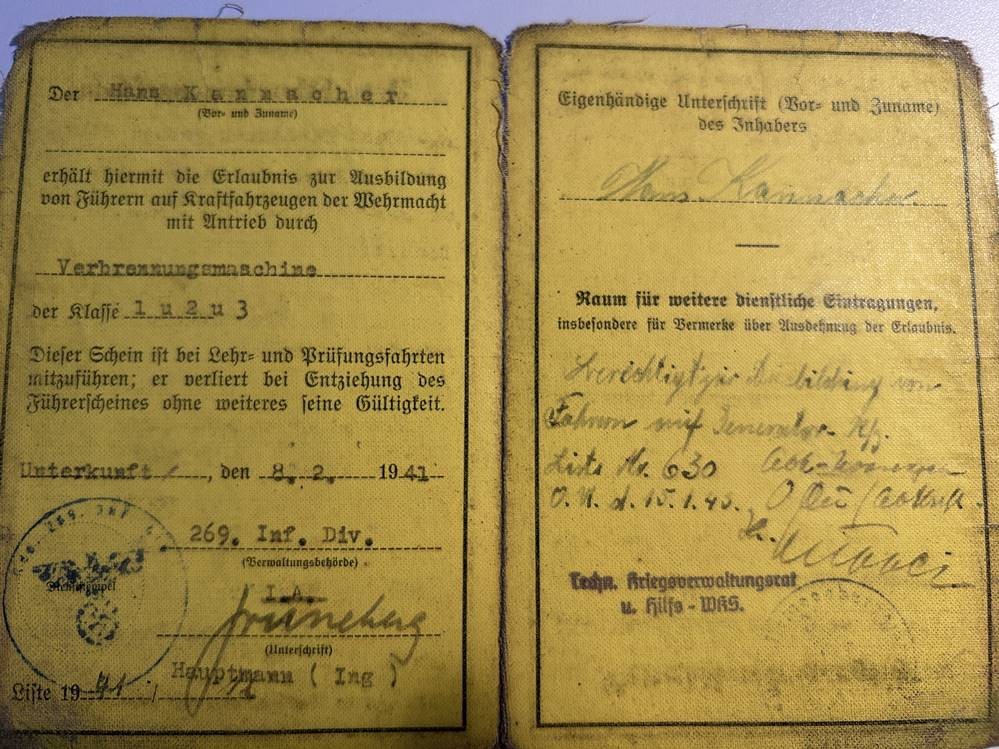 Der Hans Kannacher
(Vor- und Zuname)
erhält hiermit die Erlaubnis zur Ausbildung
von Führern auf Kraftfahrzeugen der Wehrmacht
mit Antrieb durch
Verbrennungsmaschine
der Klasse 1 u 2 u 3
Dieser Schein ist bei Lehr- und Prüfungsfahrten
mitzuführen; er verliert bei Entziehung des
Führerscheines ohne weiteres seine Gültigkeit.
Unterkunft, den 8.2. 1941
269. Inf. Div.
(Verwaltungsbehörde)
I.A.
Grüneberg
(Unterschrift)
Hauptmann ( Ing )
Liste 19 41 /
Eigenhändige Unterschrift (Vor- und Zuname)
des Inhabers
Hans Kannacher
Raum für weitere dienstliche Eintragungen,
insbesondere für Vermerke über Ausdehnung der Erlaubnis.
Berechtigt zur Ausbildung von
Fahrern auf Generator-Kfz.
Liste Nr. 630
O.U. d. 15.1.43.
Techn. Kriegsverwaltungsrat
u. Hilfs-WKS.